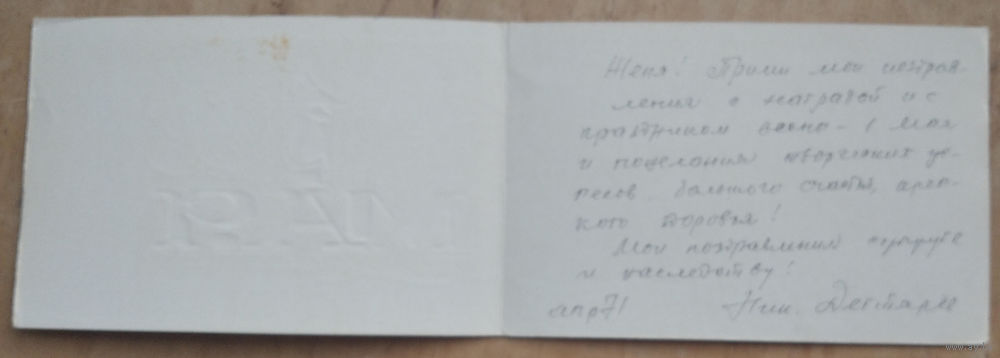 1 МАЯ
Женя! Прими мои поздрав-
ления с наградой и с
праздником весны - 1 Мая
и пожелания творческих ус-
пехов, большого счастья, креп-
кого здоровья!
Мои поздравления супруге
и наследству!
апр 71 Ник. Дегтярев
www.ay.by